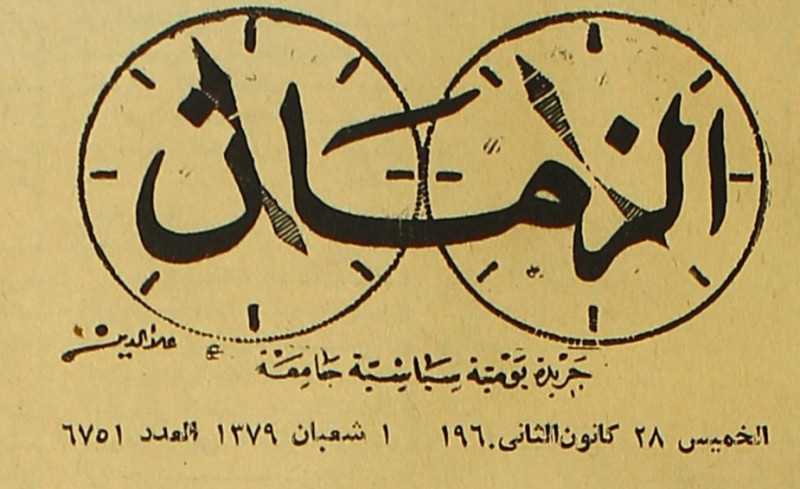 الزمان
علاءالدين
جريدة يومية سياسية جامعة
الخميس ٢٨ كانون الثانى ١٩٦٠ ١ شعبان ١٣٧٩ العدد ٦٧٥١